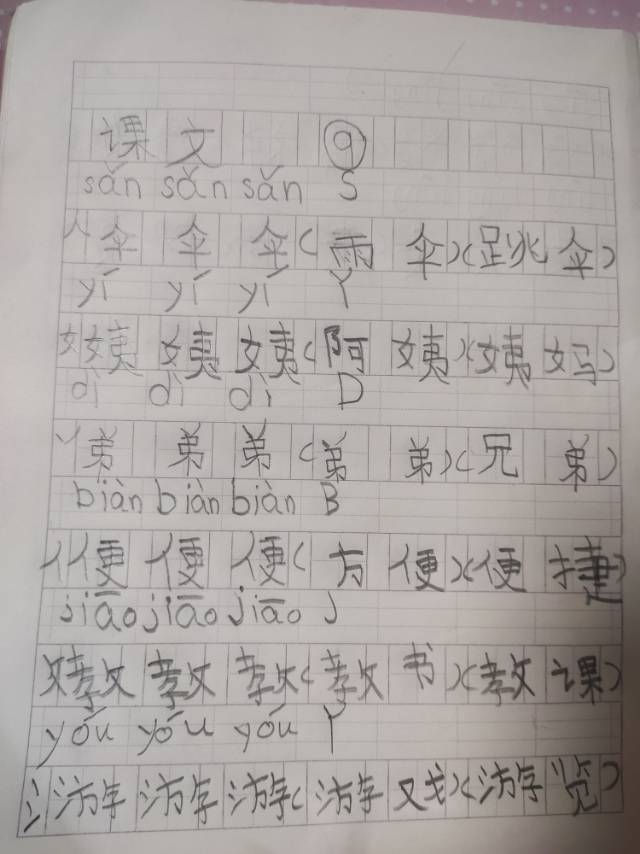 课文 ⑨
sǎn sǎn sǎn S
人伞 伞 伞(雨 伞)(跳 伞)
yí yí yí Y
女姨 姨 姨(阿 姨)(姨 妈)
dì dì dì D
丷弟 弟 弟(弟 弟)(兄 弟)
biàn biàn biàn B
亻便 便 便(方 便)(便 捷)
jiāo jiāo jiāo J
攵教 教 教(教 书)(教 课)
yóu yóu yóu Y
氵游 游 游(游 戏)(游 览)